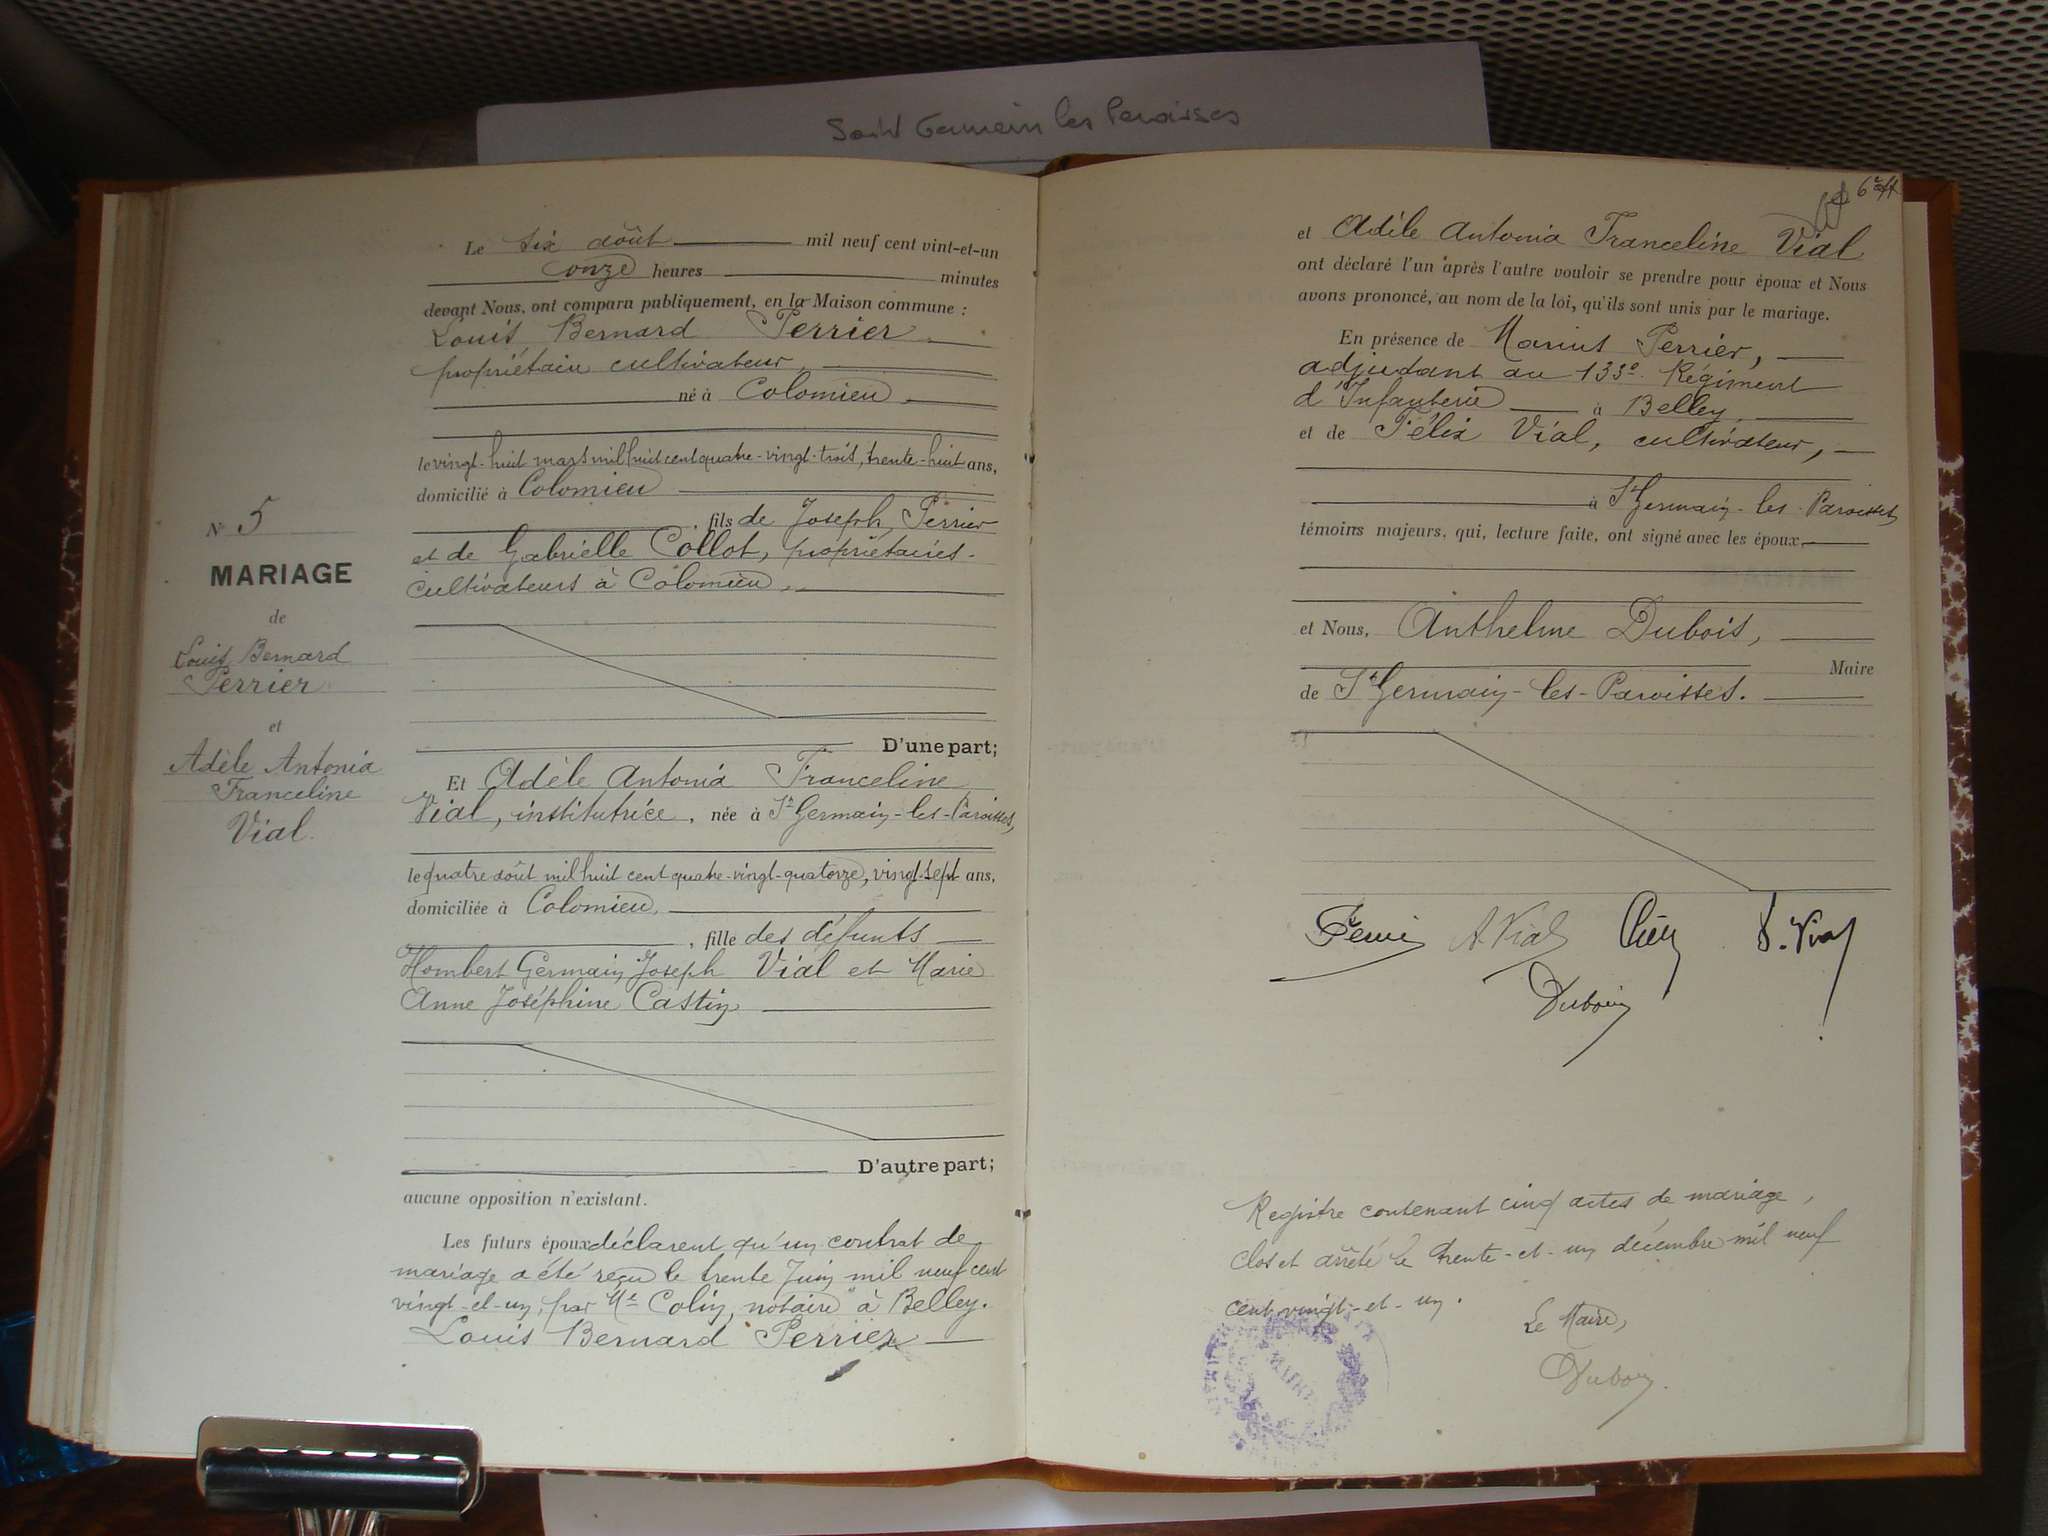 Saint Germain les Paroisses
Le six août mil neuf cent vint-et-un
onze heures minutes
devant Nous, ont comparu publiquement, en la Maison commune :
Louis Bernard Perrier
propriétaire cultivateur,
né à Colomieu,
le vingt-huit mars mil huit cent quatre-vingt-trois, trente-huit ans,
domicilié à Colomieu
fils de Joseph Perrier
et de Gabrielle Collot, propriétaires-
cultivateurs à Colomieu,
D'une part;
Et Adèle Antonia Franceline
Vial, institutrice, née à St Germain-les-Paroisses,
le quatre août mil huit cent quatre-vingt-quatorze, vingt-sept ans,
domiciliée à Colomieu,
, fille des défunts
Hombert Germain Joseph Vial et Marie
Anne Joséphine Castin
D'autre part;
aucune opposition n'existant.
Les futurs époux déclarent qu'un contrat de
mariage a été reçu le trente Juin mil neuf cent
vingt-et-un, par Me Colin, notaire à Belley.
Louis Bernard Perrier
N° 5
MARIAGE
de
Louis Bernard
Perrier
et
Adèle Antonia
Franceline
Vial.
et Adèle Antonia Franceline Vial
ont déclaré l'un après l'autre vouloir se prendre pour époux et Nous
avons prononcé, au nom de la loi, qu'ils sont unis par le mariage.
En présence de Marius Perrier,
adjudant au 133e Régiment
d'Infanterie à Belley,
et de Félix Vial, cultivateur,
à St Germain-les-Paroisses,
témoins majeurs, qui, lecture faite, ont signé avec les époux
et Nous, Anthelme Dubois,
Maire
de St Germain-les-Paroisses.
A. Vial F. Vial
Dubois
Registre contenant cinq actes de mariage,
clos et arrêté le trente-et-un décembre mil neuf
cent vingt-et-un.
Le Maire,
Dubois.